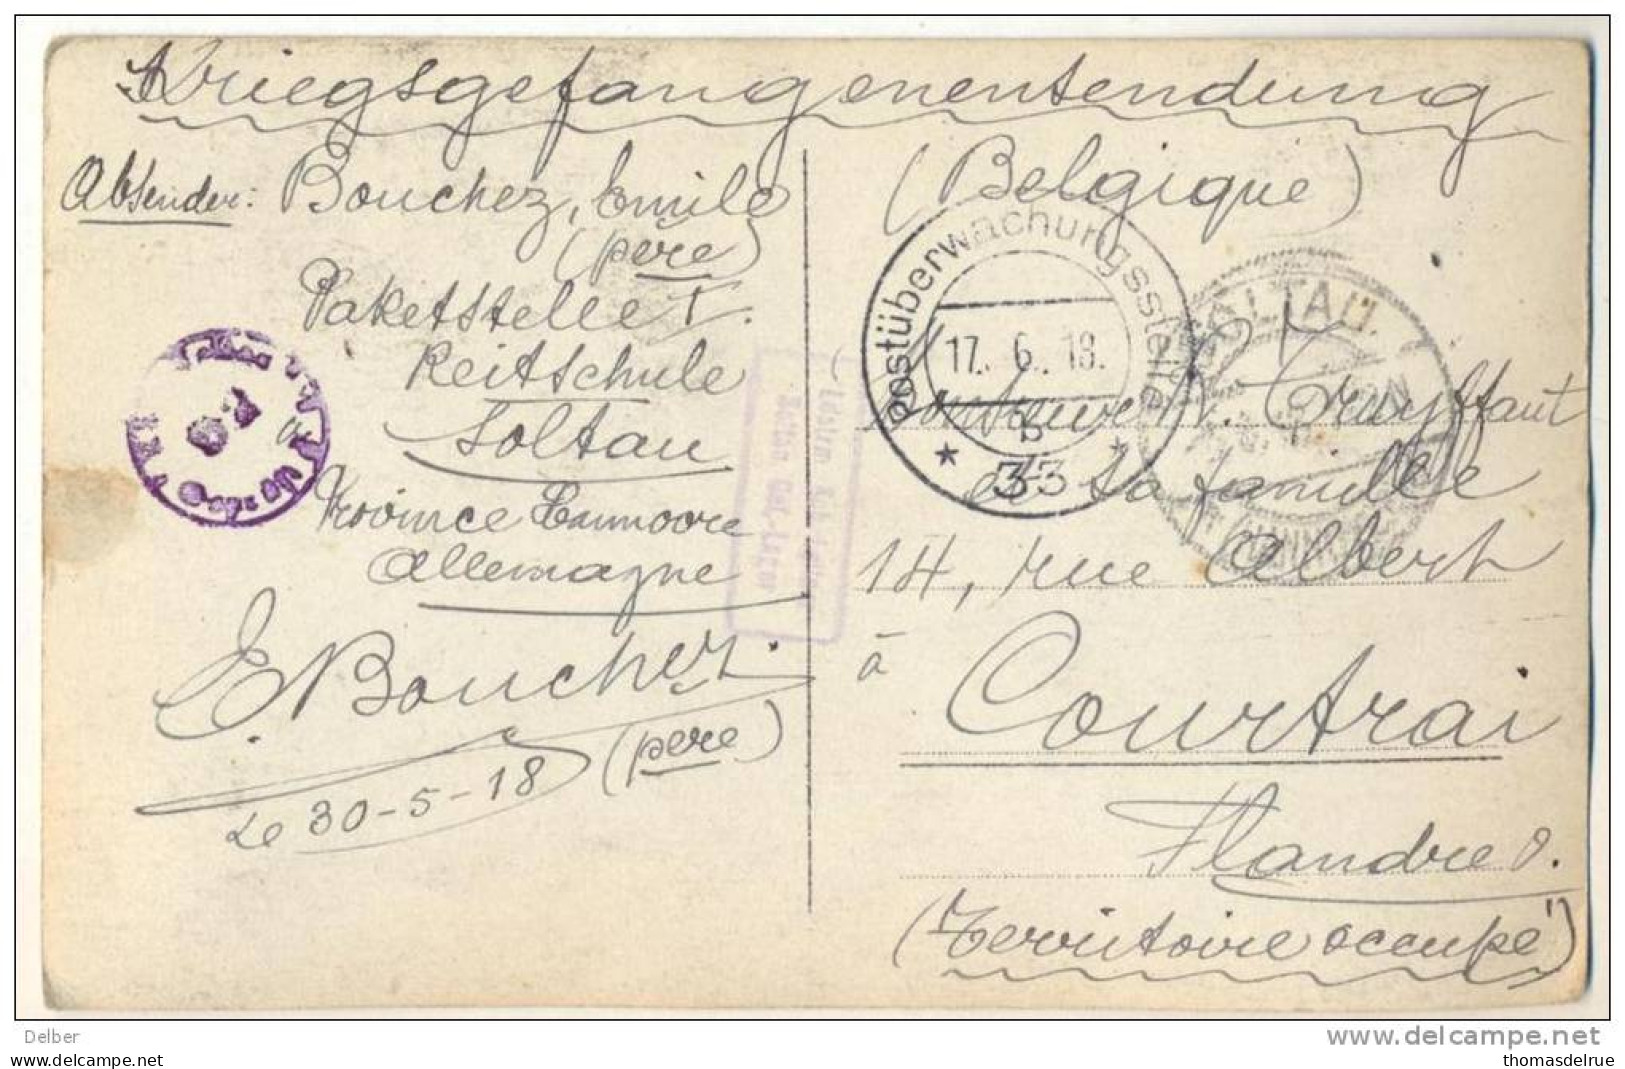 Kriegsgefangenensendung
Absender: Bouchez, Emile
(père)
Paketstelle I.
Reitschule
à Soltau
Province Hannovre
Allemagne
E. Bouchez.
(père)
Le 30-5-18
(Belgique)
Postüberwachungsstelle
17. 6. 18.
b
* 33 *
SOLTAU
Monsieur V. Truyffaut
et sa famille
14, rue Albert
à
Courtrai
Flandre O.
(Territoire occupé)
Delber
delcampe.net
thomasdelrue